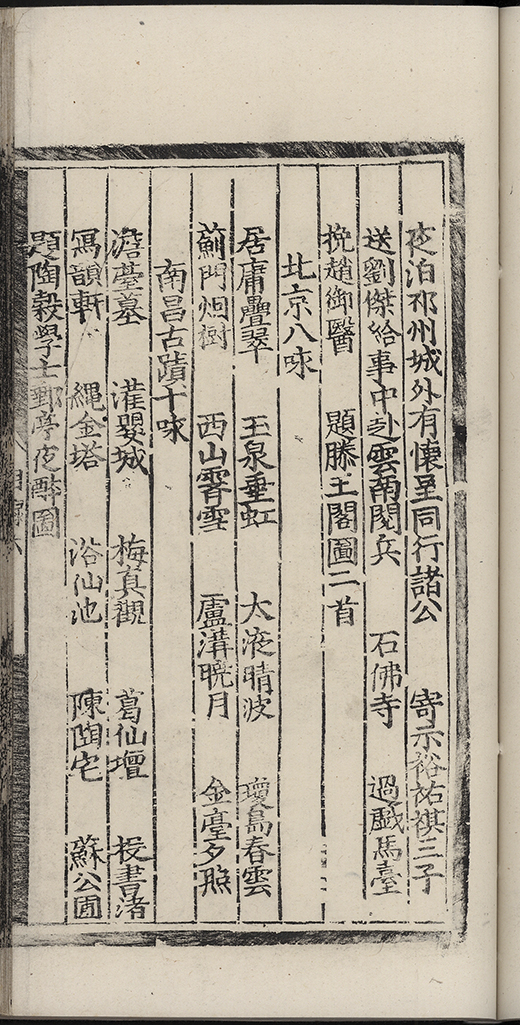 夜泊邳州城外有懷呈同行諸公　寄示裕祐祺三子
送劉傑給事中赴雲南閱兵　石佛寺　過戲馬臺
挽趙御醫　題滕王閣圖二首
北京八咏
居庸疊翠　玉泉垂虹　太液晴波　瓊島春雲
薊門烟樹　西山霽雪　盧溝曉月　金臺夕照
南昌古蹟十咏
澹臺墓　灌嬰城　梅真觀　葛仙壇　投書渚
寫韻軒　繩金塔　浴仙池　陳陶宅　蘇公圃
題陶穀學士郵亭夜醉圖